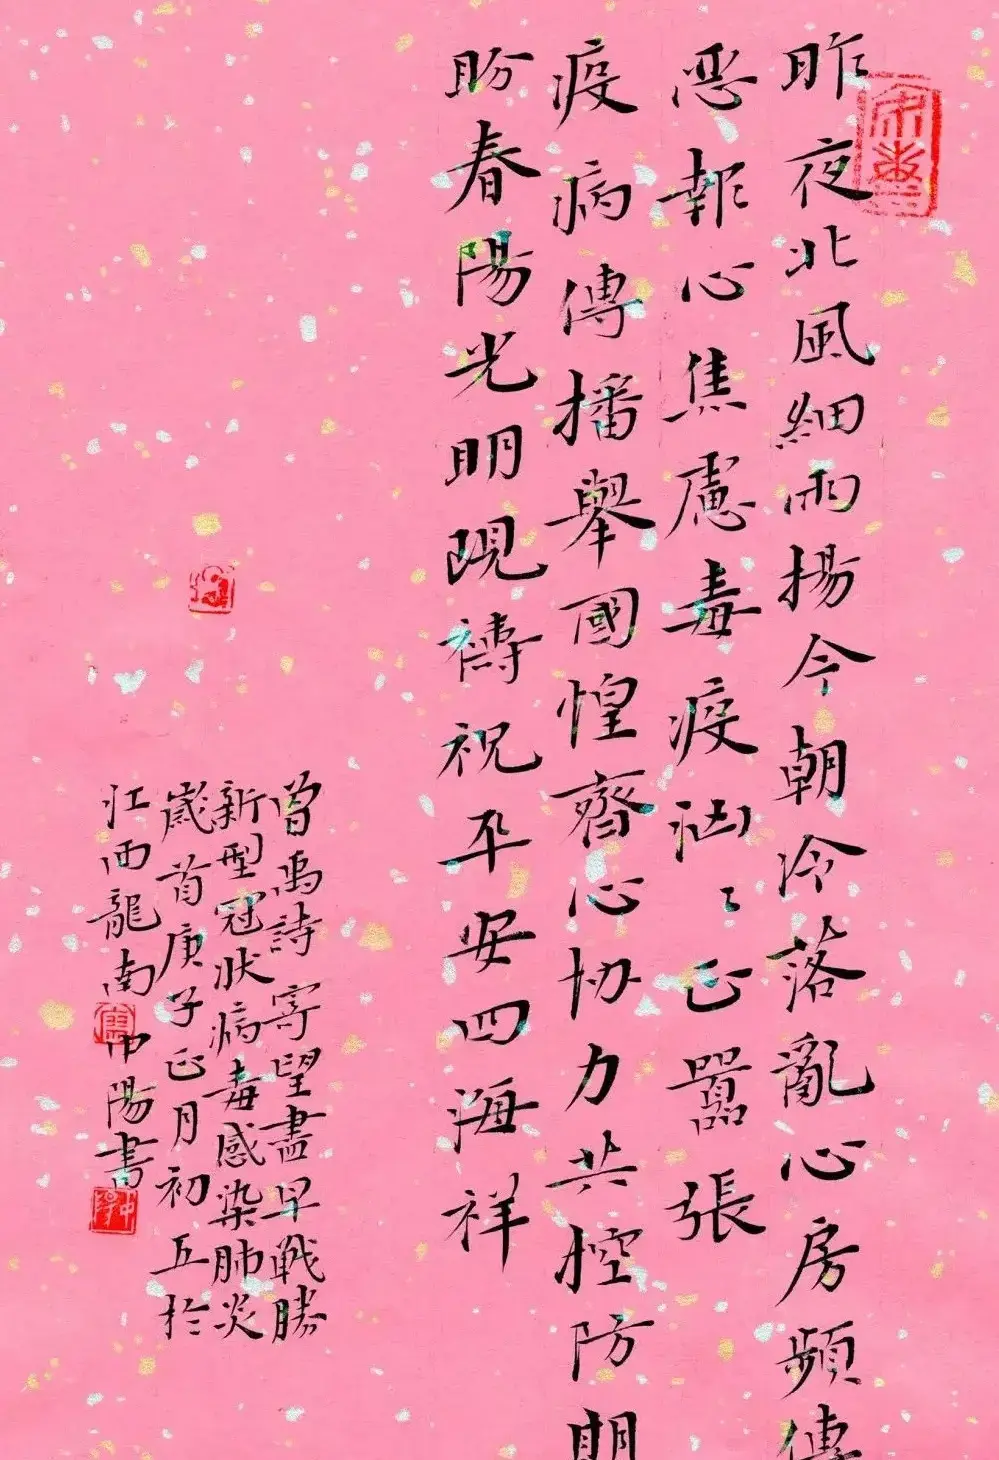 昨夜北風細雨揚今朝冷落亂心房頻傳
惡報心焦慮毒疫汹汹正囂張
疫病傳播舉國惶齊心協力共控防期
盼春陽光明現禱祝平安四海祥
曾禹詩寄望盡早戰勝
新型冠狀病毒感染肺炎
歲首庚子正月初五於
江西龍南中陽書